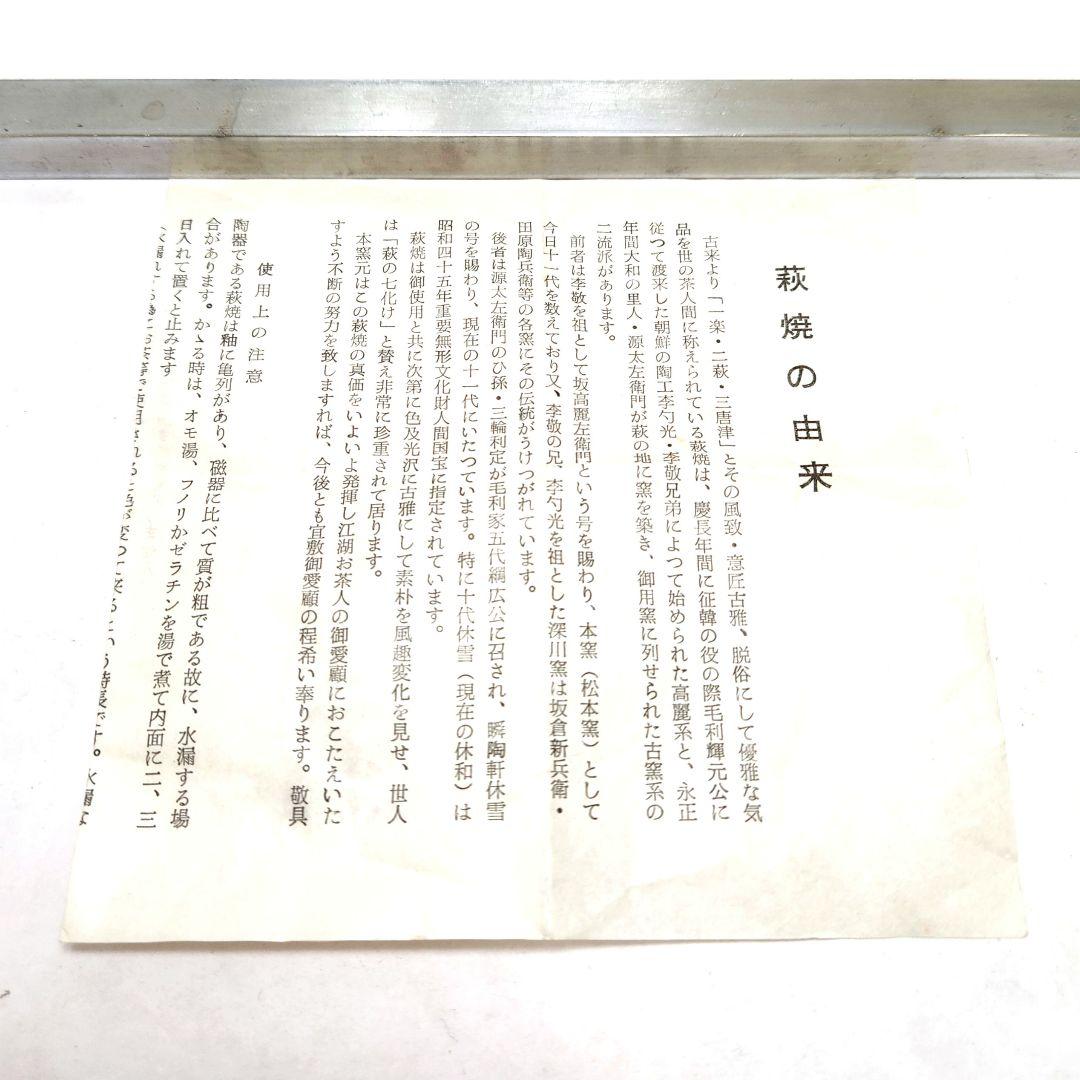 萩焼の由来
古来より「一楽・二萩・三唐津」とその風致・意匠古雅、脱俗にして優雅な気
品を世の茶人間に称えられている萩焼は、慶長年間に征韓の役の際毛利輝元公に
従つて渡来した朝鮮の陶工李勺光・李敬兄弟によつて始められた高麗系と、永正
年間大和の里人・源太左衛門が萩の地に窯を築き、御用窯に列せられた古窯系の
二流派があります。
前者は李敬を祖として坂高麗左衛門という号を賜わり、本窯（松本窯）として
今日十一代を数えており又、李敬の兄、李勺光を祖とした深川窯は坂倉新兵衛・
田原陶兵衛等の各窯にその伝統がうけつがれています。
後者は源太左衛門のひ孫・三輪利定が毛利家五代綱広公に召され、瞬陶軒休雪
の号を賜わり、現在の十一代にいたつています。特に十代休雪（現在の休和）は
昭和四十五年重要無形文化財人間国宝に指定されています。
萩焼は御使用と共に次第に色及光沢に古雅にして素朴を風趣変化を見せ、世人
は「萩の七化け」と賛え非常に珍重されて居ります。
本窯元はこの萩焼の真価をいよいよ発揮し江湖お茶人の御愛顧におこたえいた
すよう不断の努力を致しますれば、今後とも宜敷御愛顧の程希い奉ります。敬具
使用上の注意
陶器である萩焼は釉に亀列があり、磁器に比べて質が粗である故に、水漏する場
合があります。かゝる時は、オモ湯、フノリかゼラチンを湯で煮て内面に二、三
日入れて置くと止みます